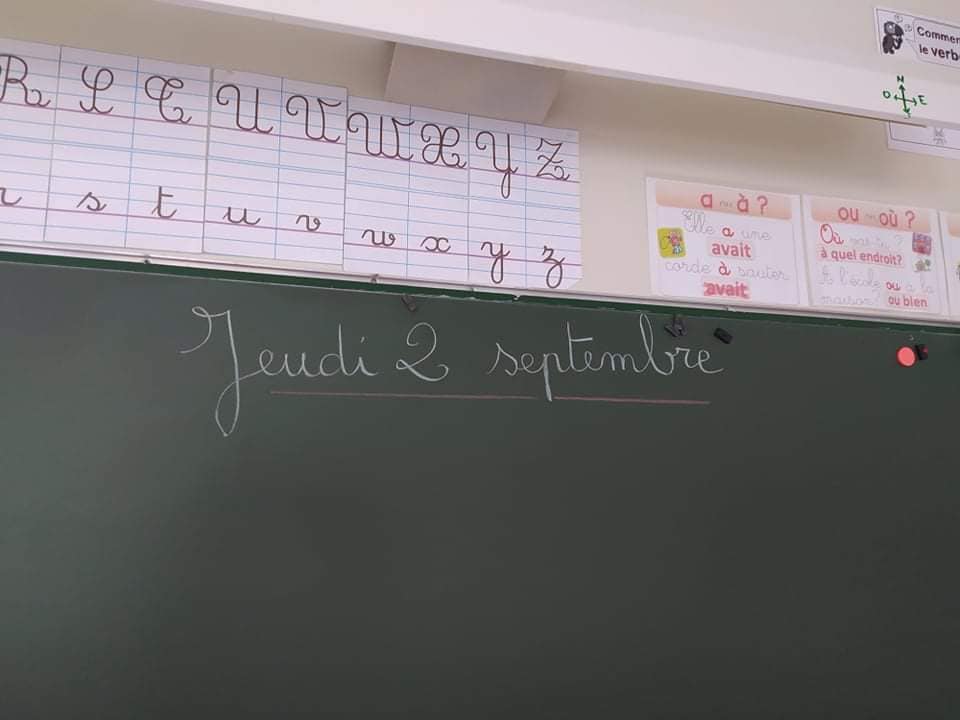 R S T U V W X Y Z
r s t u v w x y z
Commen
le verb
N
O E
a ou à ?
Elle a une
avait
corde à sauter
avait
ou ou où ?
Où vas-tu ?
à quel endroit?
A l'école ou à la
maison? ou bien
Jeudi 2 septembre